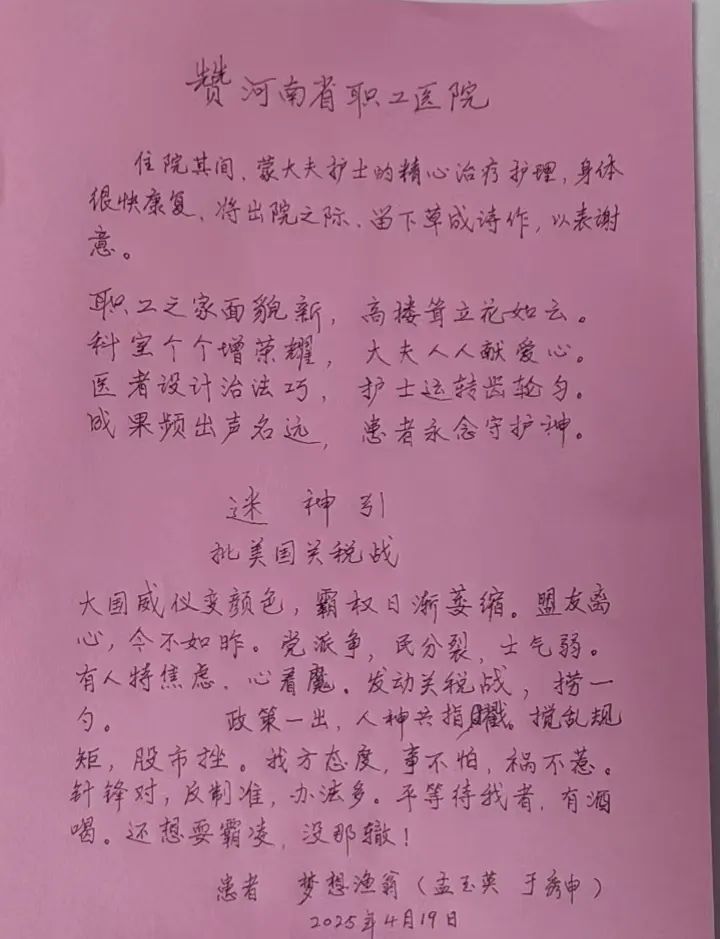 赞河南省职工医院
住院其间、蒙大夫护士的精心治疗护理,身体
很快康复、将出院之际、留下草成诗作,以表谢
意。
职工之家面貌新, 高楼耸立花如云。
科室个个增荣耀, 大夫人人献爱心。
医者设计治法巧, 护士运转齿轮匀。
成果频出声名远, 患者永念守护神。
迷神引
批美国关税战
大国威仪变颜色,霸权日渐萎缩。盟友离
心,今不如昨。党派争,民分裂,士气弱。
有人特焦虑、心着魔。发动关税战,捞一
勺。 政策一出、人神共指戳。搅乱规
矩,股市挫。我方态度,事不怕,祸不惹。
针锋对,反制准,办法多。平等待我者,有酒
喝。还想耍霸凌,没那辙!
患者 梦想渔翁(孟玉英 于秀申)
2025年4月19日